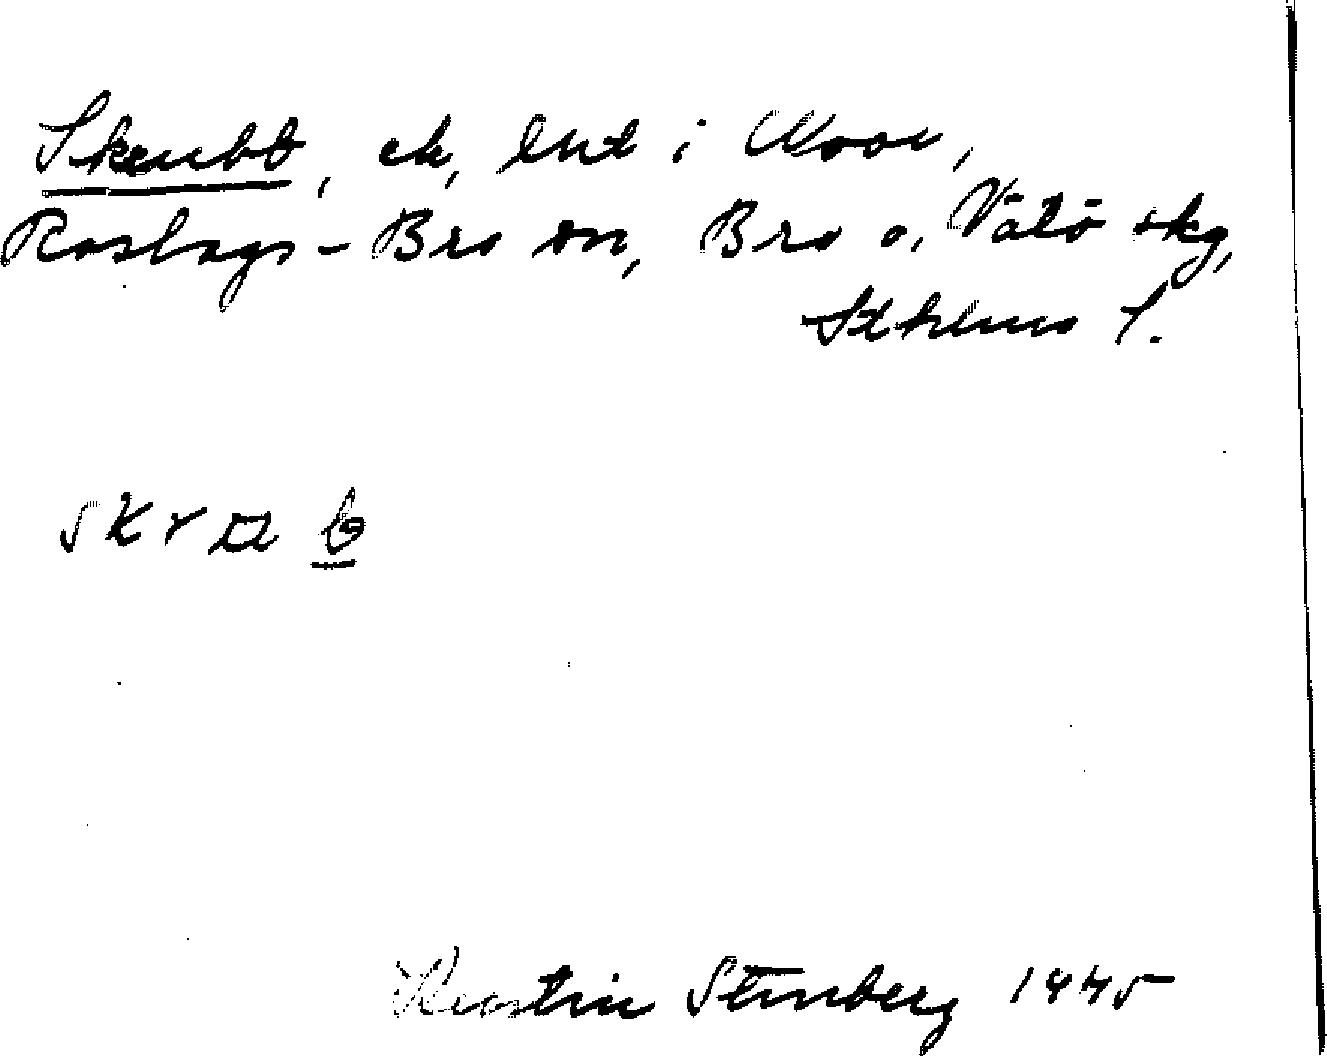 Skrubb, ek, lht i Noor,
Roslags-Bro sn, Bro o. Vätö skg,
Sthlms l.
Kerstin Stenberg 1945